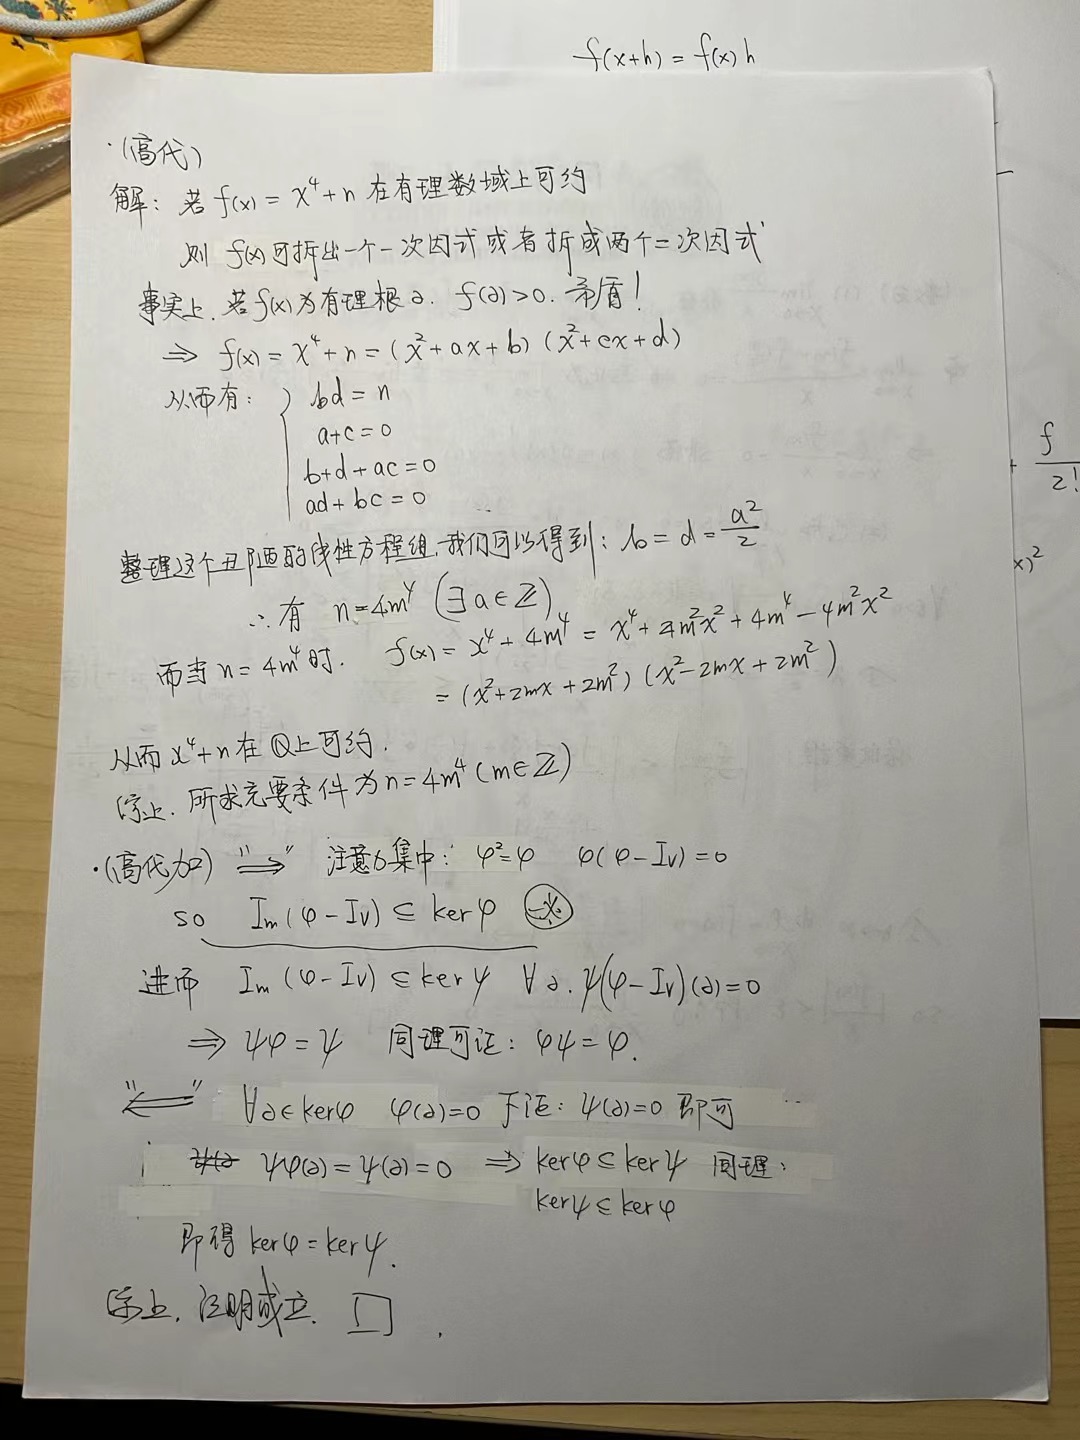 f(x+h) = f(x)h
·(高代)
解: 若 f(x) = x⁴+n 在有理数域上可约
则 f(x)可拆出一个一次因式或者拆成两个二次因式
事实上, 若f(x)为有理根∂. f(∂)>0. 矛盾!
⇒ f(x) = x⁴+n = (x²+ax+b)(x²+cx+d)
从而有: { bd = n
a+c=0
b+d+ac=0
ad+bc=0
整理这个丑陋的线性方程组, 我们可以得到: b=d=a²/2
∴有 n=4m⁴ (∃a∈ℤ)
而当 n=4m⁴时. f(x) = x⁴+4m⁴ = x⁴+4m²x²+4m⁴-4m²x²
= (x²+2mx+2m²)(x²-2mx+2m²)
从而 x⁴+n 在ℚ上可约.
综上. 所求充要条件为 n=4m⁴ (m∈ℤ)
·(高代加) "⇒" 注意力集中: φ²=φ φ(φ-Iv)=0
so Im(φ-Iv) ⊆ kerφ
进而 Im(φ-Iv) ⊆ kerψ ∀∂. ψ(φ-Iv)(∂)=0
⇒ ψφ=ψ 同理可证: φψ=φ.
"⇐" ∀∂∈kerφ φ(∂)=0 下证: ψ(∂)=0 即可
ψφ(∂)=ψ(∂)=0 ⇒ kerφ⊆kerψ 同理:
kerψ⊆kerφ
即得 kerφ=kerψ.
综上, 证明成立. □
f/2!
x)²